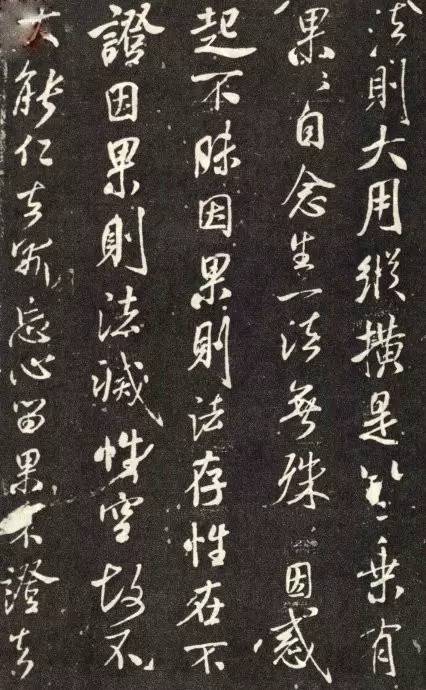 法則大用縱橫是以乘有
果〻自念生一法無殊因感
起不昧因果則法存性在不
證因果則法滅性空故不
大能仁忘心留果不證